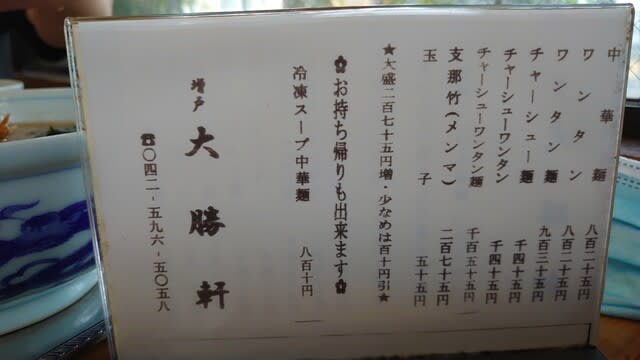 中華麺 八百二十五円
ワンタン 八百二十五円
ワンタン麺 九百三十五円
チャーシュー麺 千四十五円
チャーシューワンタン 千四十五円
チャーシューワンタン麺 千百五十五円
支那竹(メンマ) 二百七十五円
玉子 五十五円
★大盛二百七十五円増・少なめは百十円引★
✿お持ち帰りも出来ます✿
冷凍スープ中華麺 八百十円
増戸 大勝軒
☎〇四二-五九六-五〇五八